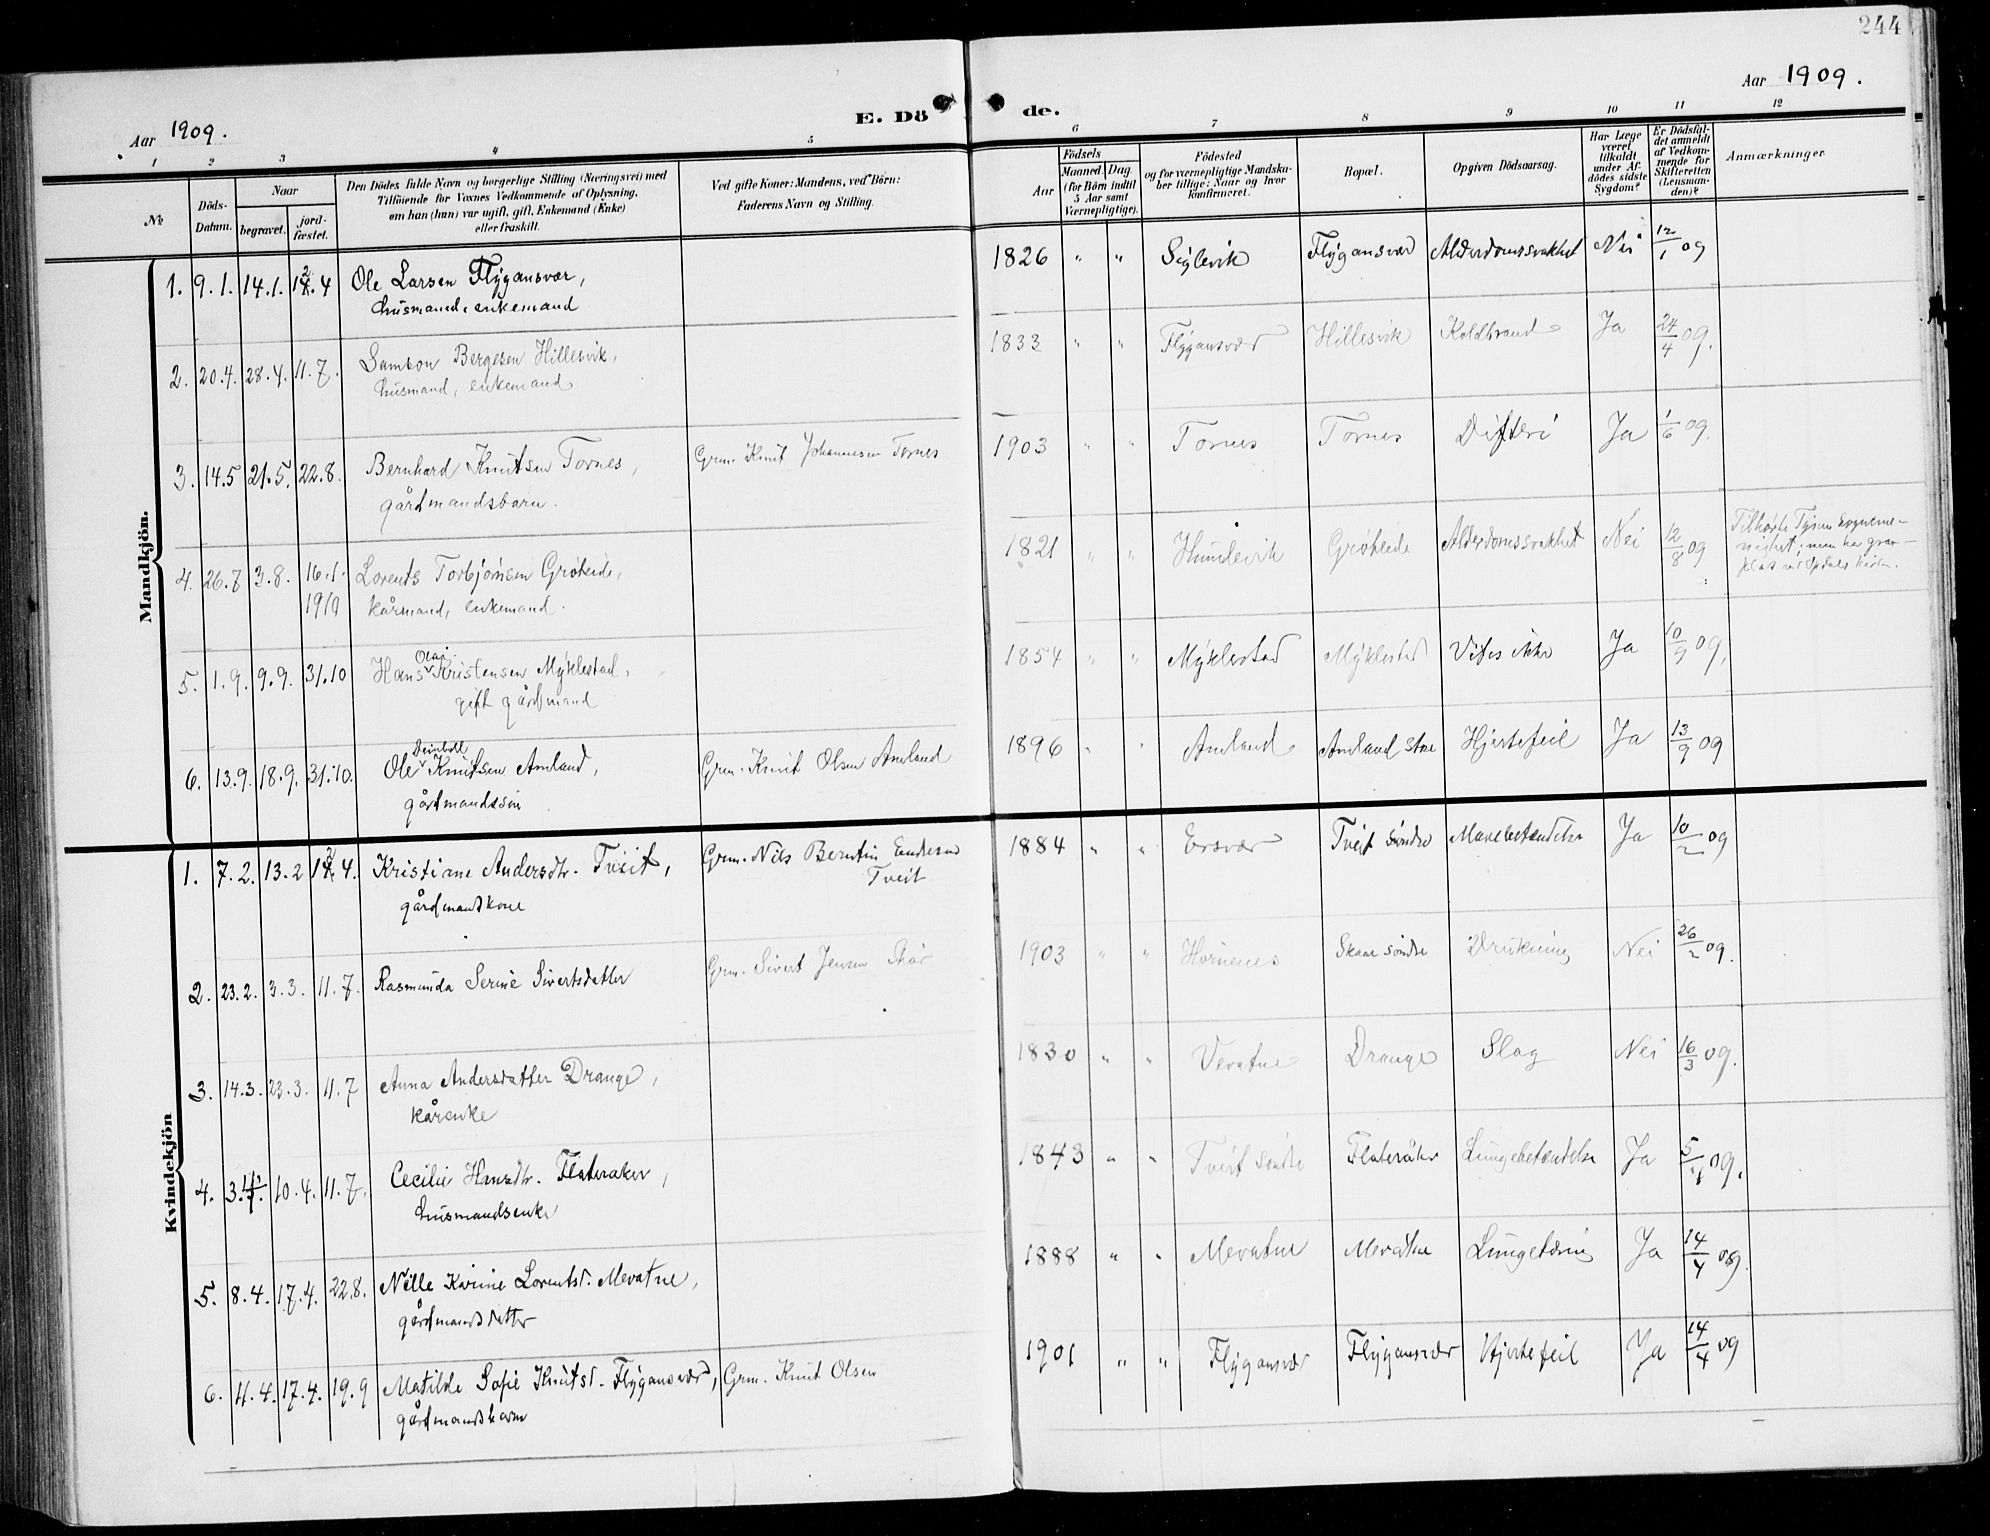 244
Aar 1909.
E. Døde.
Aar 1909.
1 2 3 4 5 6 7 8 9 10 11 12
No
Döds-Datum.
Naar
begravet.
jord-fæstet.
Den Dödes fulde Navn og borgerlige Stilling (Næringsvei) med
Tilföiende for Voxnes Vedkommende af Oplysning,
om han (hun) var ugift, gift, Enkemand (Enke)
eller fraskilt.
Ved gifte Koner: Mandens, ved Börn:
Faderens Navn og Stilling.
Födsels
Aar
Maaned. Dag.
(for Börn indtil
5 Aar samt
Værnepligtige).
Födested
og for værnepligtige Mandska-
ber tillige: Naar og hvor
konfirmeret.
Bopæl.
Opgiven Dödsaarsag.
Har Læge
været
tilkaldt
under Af-
dödes sidste
Sygdom?
Er Dödsfal-
det anmeldt
af Vedkom-
mende for
Skifteretten
(Lensman-
den)?
Anmærkninger
Mandkjön.
1. 9.1. 14.1. 12.4 Ole Larsen Flygansvær, 1826 " " Siglevik Flygansvær Alderdomssvakhet Nei 12/1 09
husmand, enkemand
2. 20.4. 28.4. 11.7. Samson Bergesen Hillesvik, 1833 " " Flygansvær Hillesvik Koldbrand Ja 24/4 09.
husmand, enkemand
3. 14.5 21.5. 22.8. Bernhard Knutsen Tornes, Grm. Knut Johannesen Tornes 1903 " " Tornes Tornes Difteri Ja 1/6 09.
gårdmandsbarn.
4. 26.7 3.8. 16.1. 1910 Lorents Torbjørnsen Grøteide, 1821 " " Hundevik Grøteide Alderdomssvakhet Nei 12/8 09 Tilhørte Tysnes
kårmand, enkemand.
5. 1.9. 9.9. 31.10 Hans Olai Kristensen Myklestad, 1854 " " Myklestad Myklestad Vites ikke Ja 10/9 09.
gift gårdmand
6. 13.9. 18.9. 31.10. Ole Knutsen Amland, Grm. Knut Olsen Amland 1896 " " Amland Amland Hjertefeil Ja 13/9 09
gårdmandssøn
Kvindekjön
1. 7.2. 13.2 12.4. Kristiane Andersdtr. Tveit, Grm. Nils Berntin Endresen Tveit 1884 " " Ersvær Tveit søndre Mavebetændelse Ja 10/2 09
gårdmandskone
2. 23.2. 3.3. 11.7. Rasmunda Serine Sivertsdatter Grm. Sivert Jensen Skår 1903 " " Hornenes Skaar søndre Drukning Nei 26/2 09.
3. 14.3. 23.3. 11.7 Anna Andersdatter Drange, 1830 " " Vevatne Drange Slag Nei 16/3 09.
kårenke
4. 3.4. 10.4. 11.7. Cecilie Hansdtr. Flateraker, 1843 " " Tveit søndre Flateråker Lungebetændelse Ja 5/4 09.
husmandsenke
5. 8.4. 17.4. 22.8. Nille Karine Lorentsd. Mevatne, 1888 " " Mevatne Mevatne Lungetæring Ja 14/4 09.
gårdmandsdatter
6. 11.4. 17.4. 19.9 Matilde Sofie Knutsd. Flygansvær, Grm. Knut Olsen 1901 " " Flygansvær Flygansvær Hjertefeil Ja 14/4 09
gårdmandsbarn